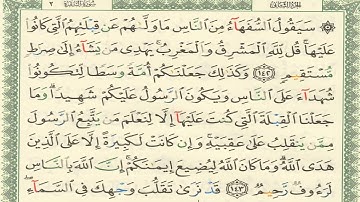 سُورَةُ البَقَرَةِ ٢ الجُزْءُ الثَّانِي
۞ سَيَقُولُ ٱلسُّفَهَآءُ مِنَ ٱلنَّاسِ مَا وَلَّىٰهُمْ عَن قِبْلَتِهِمُ ٱلَّتِى كَانُوا۟
عَلَيْهَا ۚ قُل لِّلَّهِ ٱلْمَشْرِقُ وَٱلْمَغْرِبُ ۚ يَهْدِى مَن يَشَآءُ إِلَىٰ صِرَٰطٍ
مُّسْتَقِيمٍ ﴿١٤٢﴾ وَكَذَٰلِكَ جَعَلْنَٰكُمْ أُمَّةً وَسَطًا لِّتَكُونُوا۟
شُهَدَآءَ عَلَى ٱلنَّاسِ وَيَكُونَ ٱلرَّسُولُ عَلَيْكُمْ شَهِيدًا ۗ وَمَا
جَعَلْنَا ٱلْقِبْلَةَ ٱلَّتِى كُنتَ عَلَيْهَآ إِلَّا لِنَعْلَمَ مَن يَتَّبِعُ ٱلرَّسُولَ
مِمَّن يَنقَلِبُ عَلَىٰ عَقِبَيْهِ ۚ وَإِن كَانَتْ لَكَبِيرَةً إِلَّا عَلَى ٱلَّذِينَ
هَدَى ٱللَّهُ ۗ وَمَا كَانَ ٱللَّهُ لِيُضِيعَ إِيمَٰنَكُمْ ۚ إِنَّ ٱللَّهَ بِٱلنَّاسِ
لَرَءُوفٌ رَّحِيمٌ ﴿١٤٣﴾ قَدْ نَرَىٰ تَقَلُّبَ وَجْهِكَ فِى ٱلسَّمَآءِ ۖ